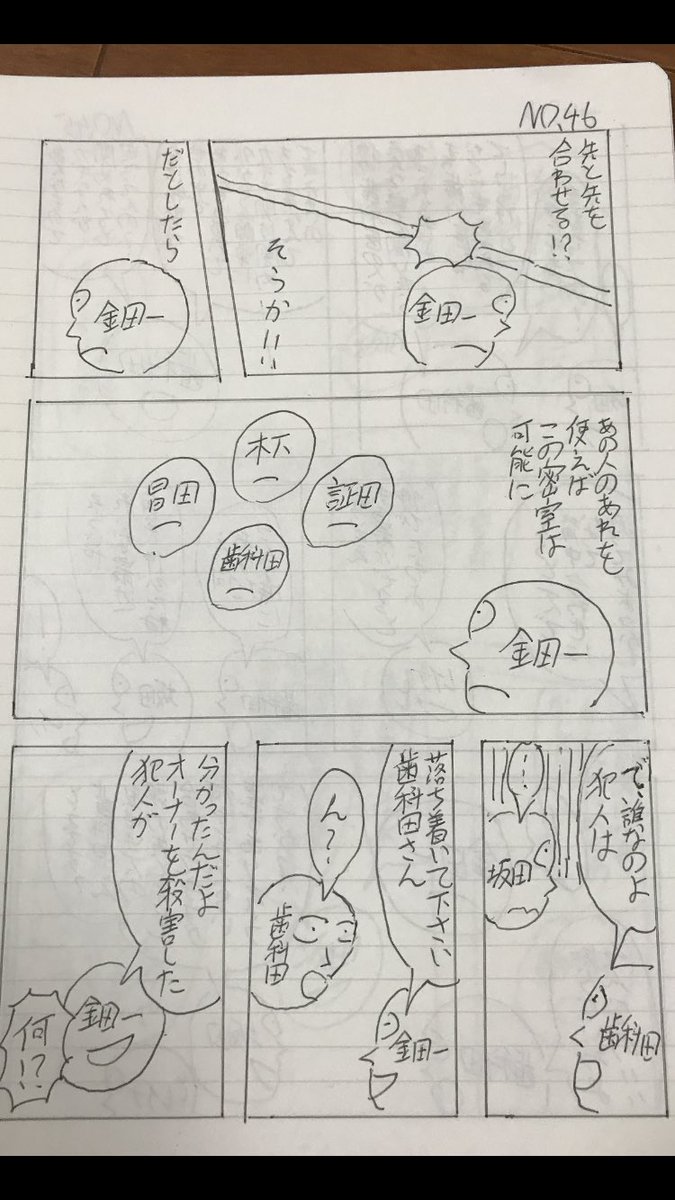 NO.46
先と先を
合わせる!?
金田一
そうか!!
だとしたら
金田一
あの人のあれを
使えば
この密室は
可能に
金田一
証田
杯
歯科田
冒田
で、誰なのよ
犯人は
歯科田
…
坂田
落ち着いて下さい
歯科田さん
金田一
ん?
歯科田
分かったんだよ
オーナーを殺害した
犯人が
金田一
何!?